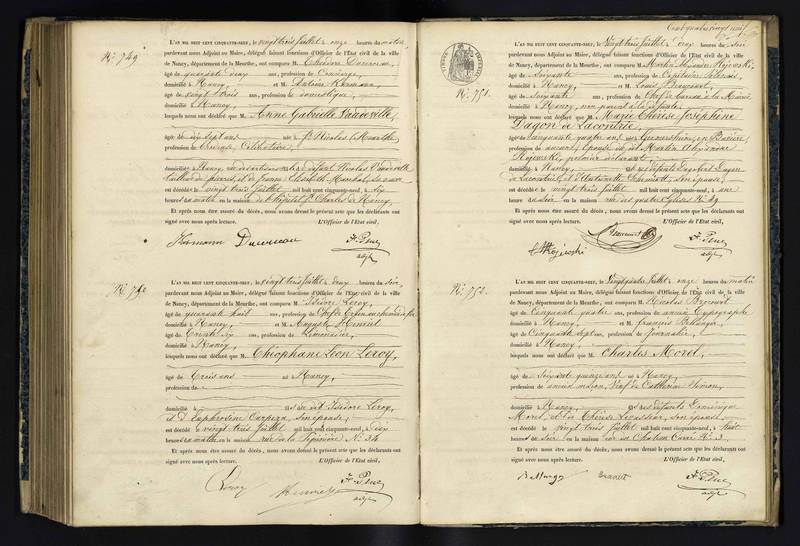 N.° 749
L'AN MIL HUIT CENT CINQUANTE-NEUF, le vingt trois Juillet à onze heures du matin,
pardevant nous Adjoint au Maire, délégué faisant fonctions d'Officier de l'État civil de la ville
de Nancy, département de la Meurthe, ont comparu M. Théodore
âgé de quarante deux ans, profession de Concierge,
domicilié à Nancy, et M. Antoine Hormann
âgé de vingt trois ans, profession de domestique,
domicilié à Nancy,
lesquels nous ont déclaré que M. Anne Gabrielle Vaudeville,
âgé de dix sept ans né à St Nicolas Meurthe
profession de Célibataire,
domicilié à Nancy défunt Nicolas Vaudeville
et de Jeanne Elisabeth
est décédé le vingt trois Juillet mil huit cent cinquante-neuf, à six
heures du matin en la maison de l'Hôpital St Charles de Nancy,
Et après nous être assuré du décès, nous avons dressé le présent acte que les déclarants ont
signé avec nous après lecture. L'Officier de l'État civil,
Hormann
adjt
N.° 750
L'AN MIL HUIT CENT CINQUANTE-NEUF, le vingt trois Juillet à deux heures du soir,
pardevant nous Adjoint au Maire, délégué faisant fonctions d'Officier de l'État civil de la ville
de Nancy, département de la Meurthe, ont comparu M. Isidore Leroy,
âgé de quarante huit ans, profession de Chef de
domicilié à Nancy, et M. Auguste
âgé de Trente six ans, profession de Limonadier,
domicilié à Nancy,
lesquels nous ont déclaré que M. Théophane Léon Leroy,
âgé de Trois ans né à Nancy,
profession de
domicilié à fils de dit Isidore Leroy,
et d'Euphrosine son épouse,
est décédé le vingt trois Juillet mil huit cent cinquante-neuf, à dix
heures du matin en la maison rue de la Pépinière N.° 34
Et après nous être assuré du décès, nous avons dressé le présent acte que les déclarants ont
signé avec nous après lecture. L'Officier de l'État civil,
Leroy
adjt
Cent quatre vingt neuf
N.° 751.
L'AN MIL HUIT CENT CINQUANTE-NEUF, le vingt trois Juillet à deux heures du soir
pardevant nous Adjoint au Maire, délégué faisant fonctions d'Officier de l'État civil de la ville
de Nancy, département de la Meurthe, ont comparu M. Martin Alexandre Rojewski,
âgé de Soixante ans, profession de Capitaine Polonais,
domicilié à Nancy, et M. Louis Beaucourt,
âgé de Soixante ans, profession de Chef de bureau à la Mairie
domicilié à Nancy, non parent à la défunte
lesquels nous ont déclaré que M. Marie Thérèse Joséphine
Dagon de Lacontrie,
âgé de Cinquante quatre ans né à
profession de épouse de dit Martin Alexandre
Rojewski, premier déclarant
domicilié à Nancy, et des défunts Dagobert Dagon
de Lacontrie, et d'Antoinette son épouse,
est décédé le vingt trois Juillet mil huit cent cinquante-neuf, à une
heure du soir en la maison rue des quatre Eglises N.° 49
Et après nous être assuré du décès, nous avons dressé le présent acte que les déclarants ont
signé avec nous après lecture. L'Officier de l'État civil,
Beaucourt
Rojewski
adjt
N.° 752.
L'AN MIL HUIT CENT CINQUANTE-NEUF, le Vingt quatre Juillet à onze heures du matin
pardevant nous Adjoint au Maire, délégué faisant fonctions d'Officier de l'État civil de la ville
de Nancy, département de la Meurthe, ont comparu M. Nicolas
âgé de Cinquante quatre ans, profession de ancien Typographe
domicilié à Nancy, et M. François
âgé de Cinquante sept ans, profession de Journalier,
domicilié à Nancy,
lesquels nous ont déclaré que M. Charles Morel,
âgé de Soixante quinze ans né à Nancy,
profession de ancien maçon, Veuf de Catherine Simon,
domicilié à Nancy, fils des défunts Dominique
Morel, et de Thérèse Levasseur, son épouse,
est décédé le vingt trois Juillet mil huit cent cinquante-neuf, à huit
heures du soir en la maison rue du Château N.° 3
Et après nous être assuré du décès, nous avons dressé le présent acte que les déclarants ont
signé avec nous après lecture. L'Officier de l'État civil,
adjt